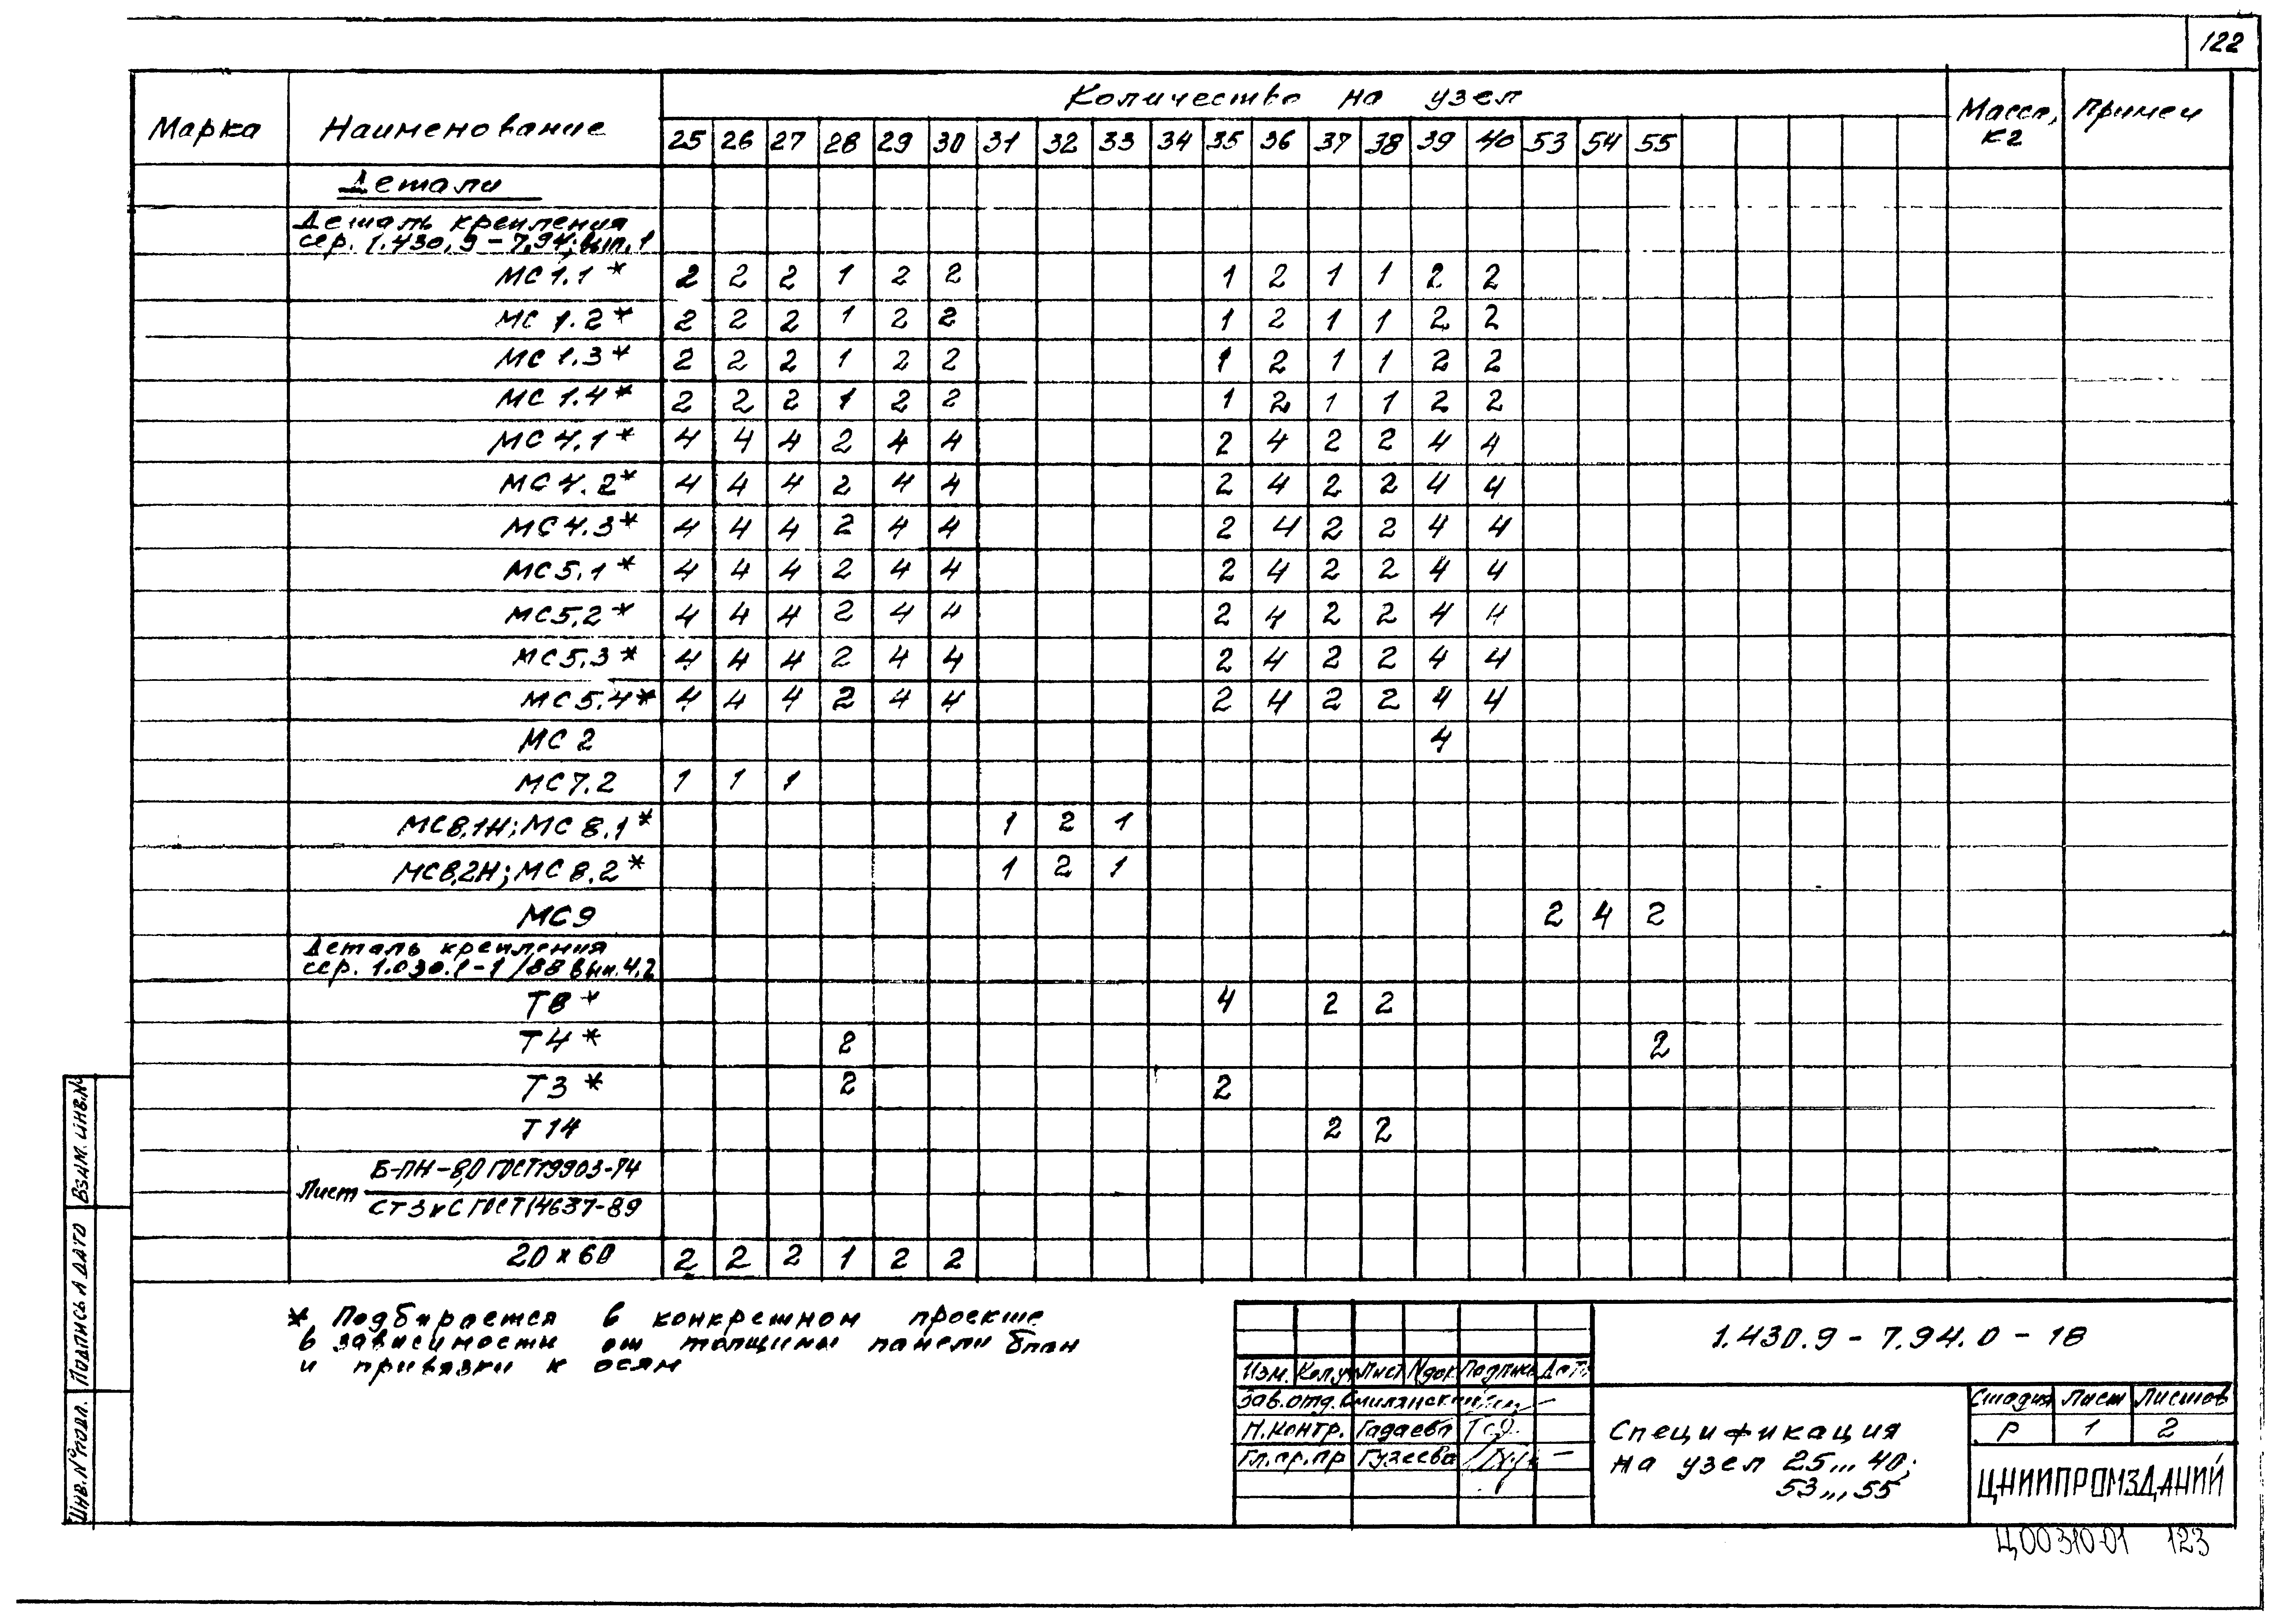 122
Марка Наименование Количество на узел Масса, кг Примеч
25 26 27 28 29 30 31 32 33 34 35 36 37 38 39 40 53 54 55
Детали
Деталь крепления
сер. 1.430.9-7.94; вып. 1
МС 1.1* 2 2 2 1 2 2 1 2 1 1 2 2
МС 1.2* 2 2 2 1 2 2 1 2 1 1 2 2
МС 1.3* 2 2 2 1 2 2 1 2 1 1 2 2
МС 1.4* 2 2 2 1 2 2 1 2 1 1 2 2
МС 4.1* 4 4 4 2 4 4 2 4 2 2 4 4
МС 4.2* 4 4 4 2 4 4 2 4 2 2 4 4
МС 4.3* 4 4 4 2 4 4 2 4 2 2 4 4
МС 5.1* 4 4 4 2 4 4 2 4 2 2 4 4
МС 5.2* 4 4 4 2 4 4 2 4 2 2 4 4
МС 5.3* 4 4 4 2 4 4 2 4 2 2 4 4
МС 5.4* 4 4 4 2 4 4 2 4 2 2 4 4
МС 2 4
МС 7.2 1 1 1
МС8.1Н; МС 8.1* 1 2 1
МС8.2Н; МС 8.2* 1 2 1
МС9 2 4 2
Деталь крепления
сер. 1.030.1-1/88 вып. 4.2
Т8* 4 2 2
Т4* 2 2
Т3* 2 2
Т14 2 2
Б-ПН-8,0 ГОСТ19903-74
Лист
Ст3кС ГОСТ14637-89
20×60 2 2 2 1 2 2
* Подбирается в конкретном проекте
в зависимости от толщины панели блан
и привязки к осям
1.430.9-7.94.0-18
Изм. Кол.уч Лист Nдок Подпись Дата
Зав.отд. Смилянский
Н.контр. Гадаева
Гл.пр.пр Гузеева
Спецификация
на узел 25... 40;
53... 55
Стадия Лист Листов
Р 1 2
ЦНИИПРОМЗДАНИЙ
Ц00310-01 123
Взам. инв.№
Подпись и дата
Инв.№подл.